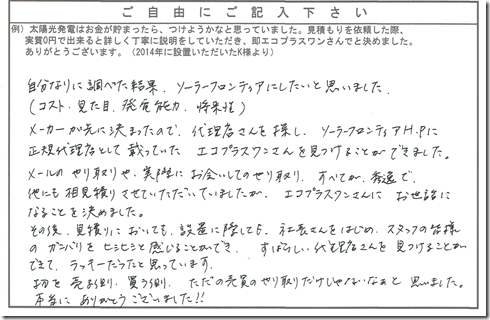 ご自由にご記入下さい
例）太陽光発電はお金が貯まったら、つけようかなと思っていました。見積もりを依頼した際、
実質0円で出来ると詳しく丁寧に説明をしていただき、即エコプラスワンさんでと決めました。
ありがとうございます。（2014年に設置いただいたK様より）
自分なりに調べた結果、ソーラーフロンティアにしたいと思いました。
（コスト、見た目、発電能力、将来性）
メーカーが先に決まったので、代理店さんを探し、ソーラーフロンティアH.Pに
正規代理店として載っていた エコプラスワンさんを見つけることができました。
メールのやり取りや、実際にお会いしてのやり取り、すべてが秀逸で、
他にも相見積りさせていただいていましたが、エコプラスワンさんに お世話に
なることを決めました。
その後、見積りにおいても、設置に際しても、社長さんをはじめ、スタッフの皆様
の ガンバリを ヒシヒシと感じることができ、すばらしい代理店さんを 見つけることが
できて、ラッキーだったと思っています。
物を 売る側、買う側、ただの売買のやり取りだけじゃないなぁと 思いました。
本当に ありがとうございました!!